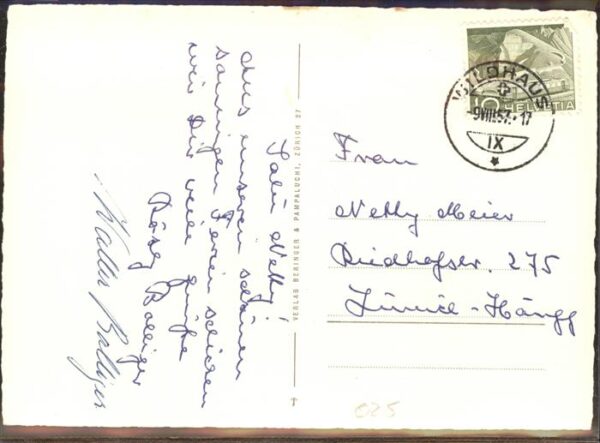 Salü Nelly!
Aus unseren schönen
sonnigen Ferien schicken
wir Dir viele Grüsse
Rösly Bolliger
Walter Bolliger
VERLAG BERINGER & PAMPALUCHI, ZÜRICH 27
WILDHAUS
-9.VIII.57.-17
IX
10 HELVETIA
Frau
Nelly Meier
Riedhofstr. 275
Zürich-Höngg
025